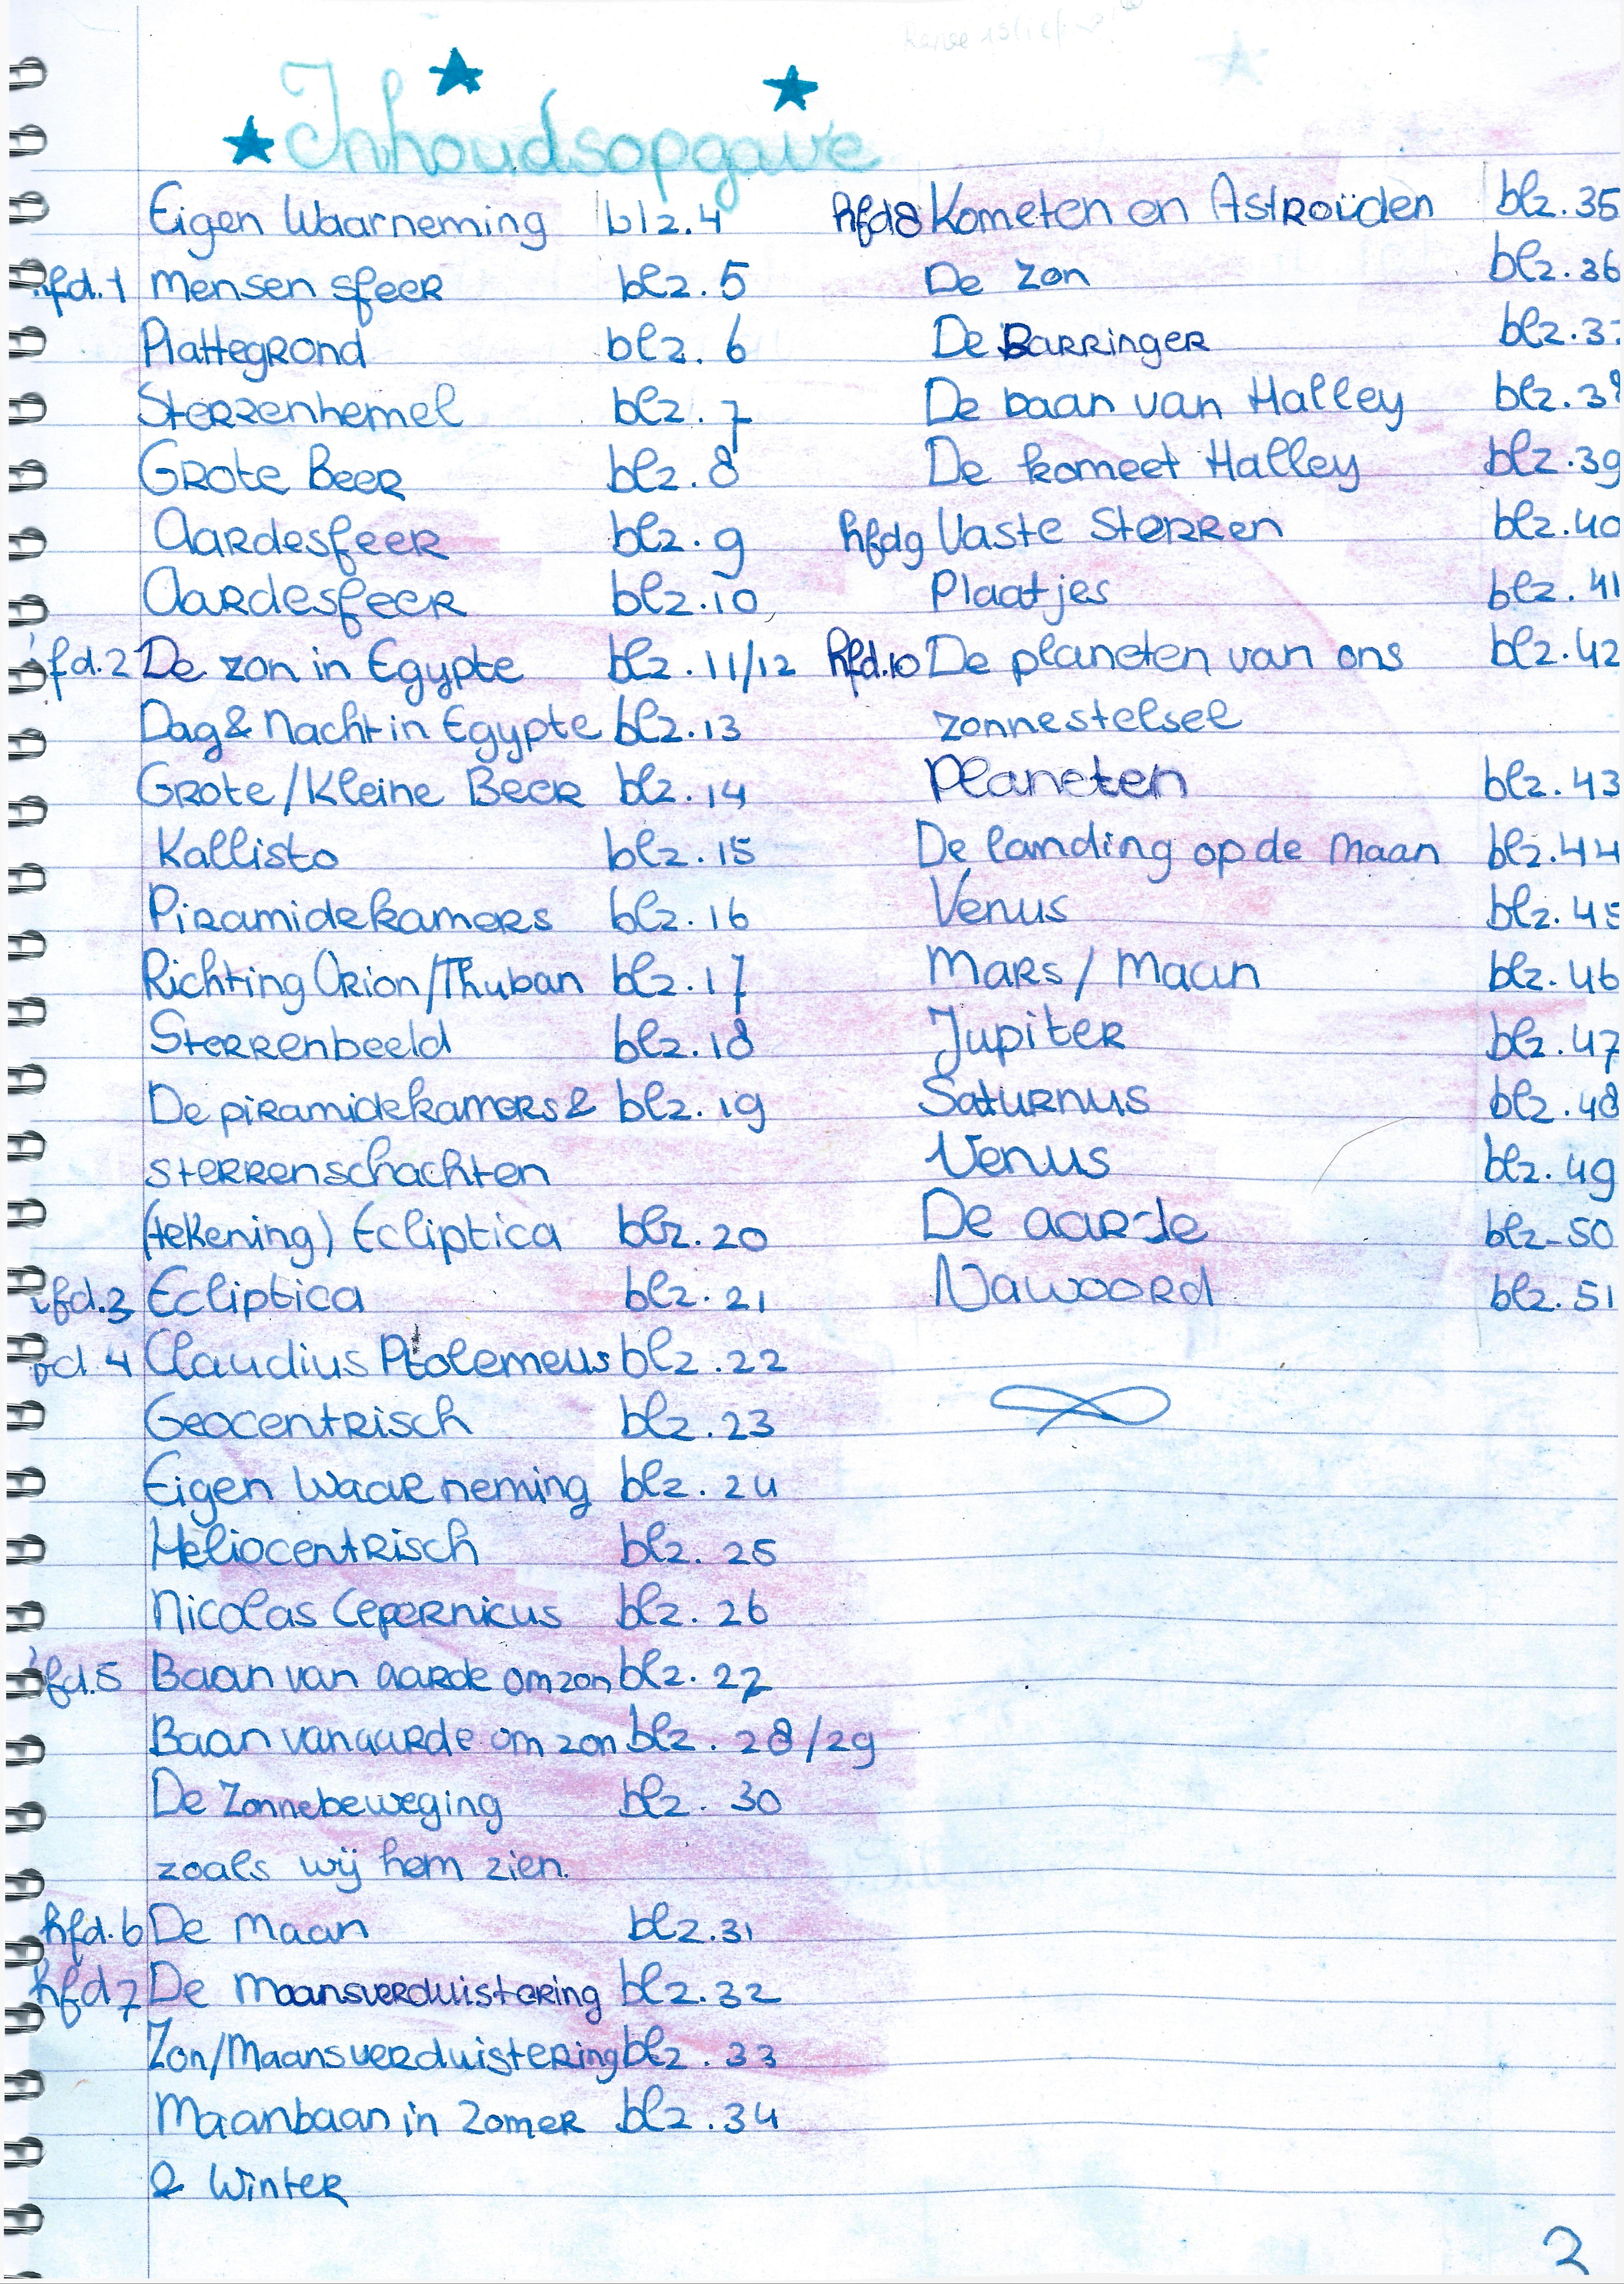 Inhoudsopgave
Eigen Waarneming blz. 4
hfd.1 Mensen sfeer blz. 5
Plattegrond blz. 6
Sterrenhemel blz. 7
Grote Beer blz. 8
Aardesfeer blz. 9
Aardesfeer blz. 10
hfd.2 De zon in Egypte blz. 11/12
Dag & Nacht in Egypte blz. 13
Grote/Kleine Beer blz. 14
Kallisto blz. 15
Piramidekamers blz. 16
Richting Orion/Thuban blz. 17
Sterrenbeeld blz. 18
De piramidekamers & blz. 19
sterrenschachten
(tekening) Ecliptica blz. 20
hfd.3 Ecliptica blz. 21
hfd.4 Claudius Ptolemeus blz. 22
Geocentrisch blz. 23
Eigen Waarneming blz. 24
Heliocentrisch blz. 25
Nicolas Cepernicus blz. 26
hfd.5 Baan van aarde om zon blz. 27
Baan van aarde om zon blz. 28/29
De Zonnebeweging blz. 30
zoals wij hem zien.
hfd.6 De Maan blz. 31
hfd 7 De Maansverduistering blz. 32
Zon/Maansverduistering blz. 33
Maanbaan in Zomer blz. 34
& Winter
hfd8 Kometen en Astroïden blz. 35
De Zon blz. 36
De Barringer blz. 3
De baan van Halley blz. 38
De komeet Halley blz. 39
hfd9 Vaste Sterren blz. 40
Plaatjes blz. 41
hfd.10 De planeten van ons blz. 42
zonnestelsel
Planeten blz. 43
De landing op de Maan blz. 44
Venus blz. 45
Mars / Maan blz. 46
Jupiter blz. 47
Saturnus blz. 48
Venus blz. 49
De aarde blz. 50
Nawoord blz. 51
2